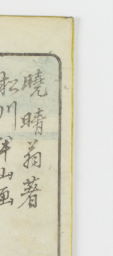 暁晴翁著
松川半山画